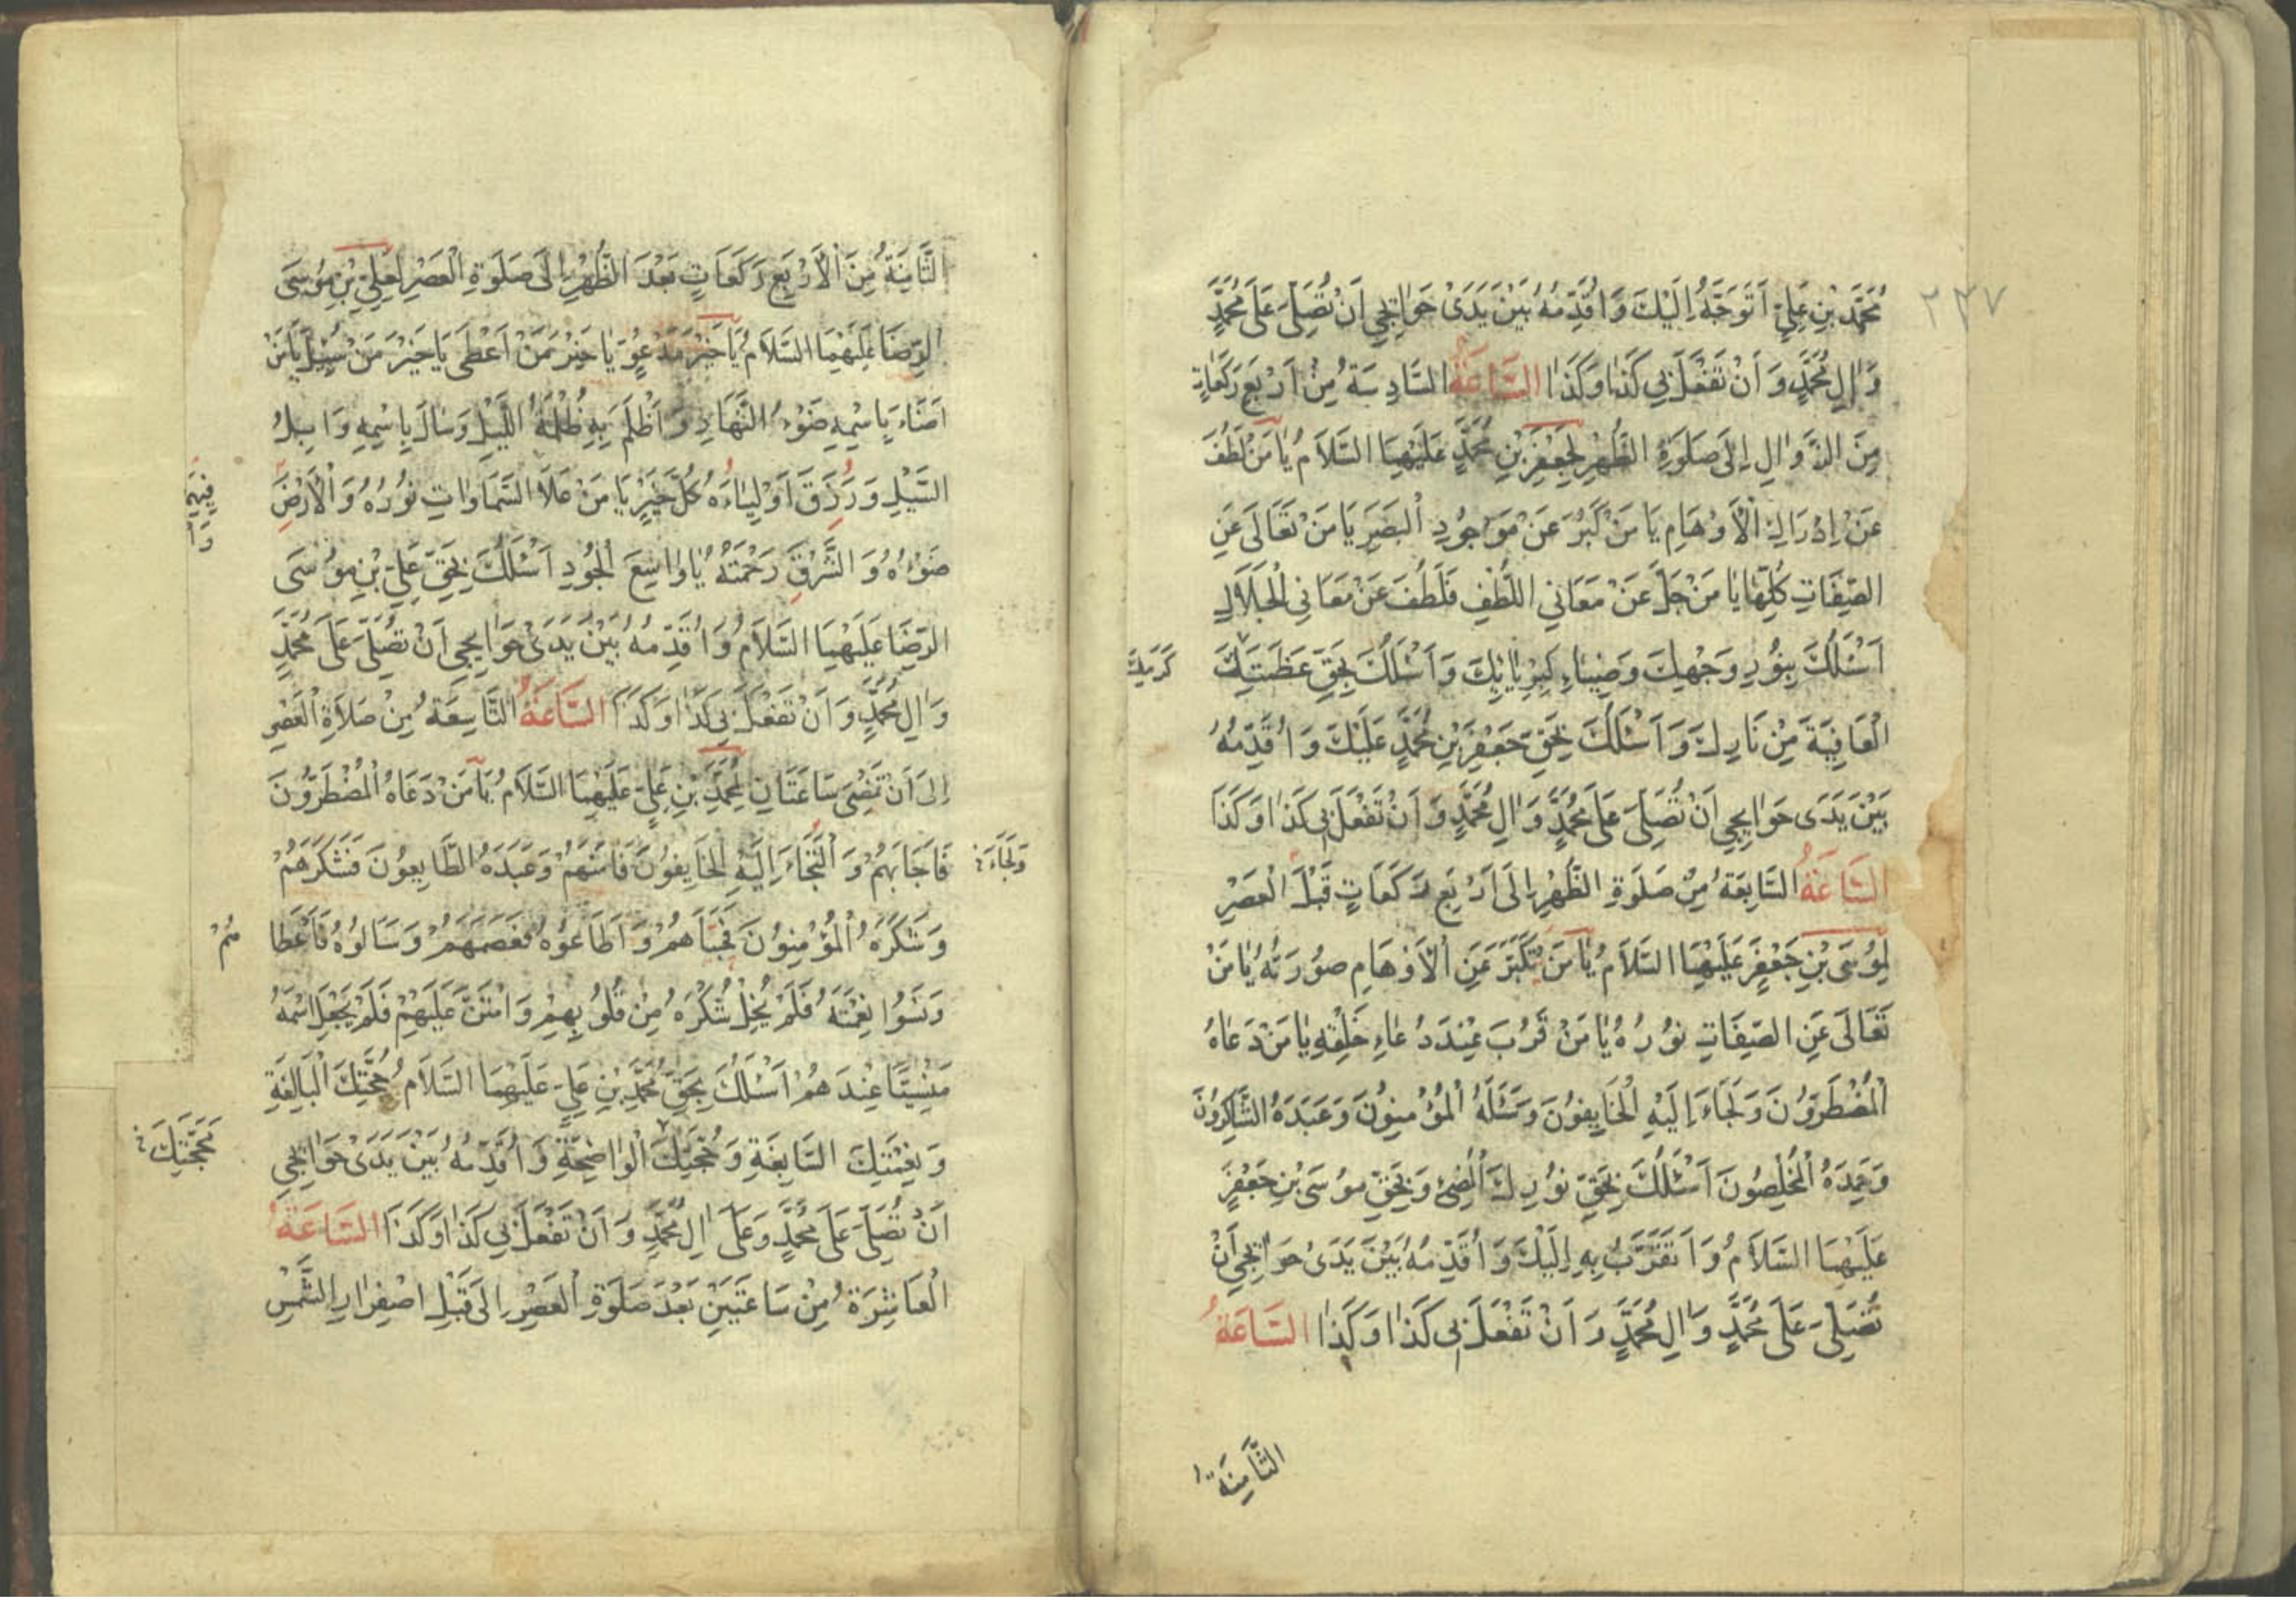 مُحَمَّدِ بْنِ عَلِيٍّ اَتَوَجَّهُ اِلَيْكَ وَاُقَدِّمُهُ بَيْنَ يَدَيْ حَوَائِجِي اَنْ تُصَلِّيَ عَلَى مُحَمَّدٍ
۲۳۷
وَاٰلِ مُحَمَّدٍ وَ اَنْ تَفْعَلَ بِي كَذَا وَكَذَا السَّاعَةُ السَّادِسَةُ مِنْ اَرْبَعِ رَكَعَاتٍ
مِنَ الزَّوَالِ اِلَى صَلَوةِ الظُّهْرِ لِجَعْفَرِ بْنِ مُحَمَّدٍ عَلَيْهِمَا السَّلَامُ يَا مَنْ لَطُفَ
عَنْ اِدْرَاكِ الْاَوْهَامِ يَا مَنْ كَبُرَ عَنْ مَوْجُودِ الْبَصَرِ يَا مَنْ تَعَالَى عَنِ
الصِّفَاتِ كُلِّهَا يَا مَنْ جَلَّ عَنْ مَعَانِي اللُّطْفِ وَلَطُفَ عَنْ مَعَانِي الْجَلَالِ
اَسْئَلُكَ بِنُورِ وَجْهِكَ وَضِيَاءِ كِبْرِيَائِكَ وَاَسْئَلُكَ بِحَقِّ عَظَمَتِكَ
الْعَافِيَةَ مِنْ نَارِكَ وَ اَسْئَلُكَ بِحَقِّ جَعْفَرِ بْنِ مُحَمَّدٍ عَلَيْكَ وَ اُقَدِّمُهُ
بَيْنَ يَدَيْ حَوَايِجِي اَنْ تُصَلِّيَ عَلَى مُحَمَّدٍ وَاٰلِ مُحَمَّدٍ وَ اَنْ تَفْعَلَ بِي كَذَا وَكَذَا
السَّاعَةُ السَّابِعَةُ مِنْ صَلَوةِ الظُّهْرِ اِلَى اَرْبَعِ رَكَعَاتٍ قَبْلَ الْعَصْرِ
لِمُوسَى بْنِ جَعْفَرٍ عَلَيْهِمَا السَّلَامُ يَا مَنْ تَكَبَّرَ عَنِ الْاَوْهَامِ صُورَتُهُ يَا مَنْ
تَعَالَى عَنِ الصِّفَاتِ نُورُهُ يَا مَنْ قَرُبَ عِنْدَ دُعَاءِ خَلْقِهِ يَا مَنْ دَعَاهُ
الْمُضْطَرُّونَ وَلَجَاءَ اِلَيْهِ الْخَايِفُونَ وَسَئَلَهُ الْمُؤْمِنُونَ وَعَبَدَهُ الشَّاكِرُونَ
وَحَمِدَهُ الْمُخْلِصُونَ اَسْئَلُكَ بِحَقِّ نُورِكَ الْمُضِئِ وَ بِحَقِّ مُوسَى بْنِ جَعْفَرٍ
عَلَيْهِمَا السَّلَامُ وَ اَتَقَرَّبُ بِهِ اِلَيْكَ وَ اُقَدِّمُهُ بَيْنَ يَدَيْ حَوَائِجِي اَنْ
تُصَلِّيَ عَلَى مُحَمَّدٍ وَ اٰلِ مُحَمَّدٍ وَ اَنْ تَفْعَلَ بِي كَذَا وَ كَذَا السَّاعَةُ
الثَّامِنَةُ
الثَّامِنَةُ مِنَ الْاَرْبَعِ رَكَعَاتٍ بَعْدَ الظُّهْرِ اِلَى صَلَوةِ الْعَصْرِ لِعَلِيِّ بْنِ مُوسَى
الرِّضَا عَلَيْهِمَا السَّلَامُ يَا خَيْرَ مَدْعُوٍّ يَا خَيْرَ مَنْ اَعْطَى يَا خَيْرَ مَنْ سُئِلَ يَا مَنْ
اَضَاءَ بِاسْمِهِ ضَوْءُ النَّهَارِ وَ اَظْلَمَ بِهِ ظُلْمَةُ اللَّيْلِ وَسَالَ بِاسْمِهِ وَابِلُ
السَّيْلِ وَ رَزَقَ اَوْلِيَاءَهُ كُلَّ خَيْرٍ يَا مَنْ عَلَا السَّمَاوَاتِ نُورُهُ وَ الْاَرْضَ
ضَوْءُهُ وَ الشَّرْقَ رَحْمَتُهُ يَا وَاسِعَ الْجُودِ اَسْئَلُكَ بِحَقِّ عَلِيِّ بْنِ مُوسَى
الرِّضَا عَلَيْهِمَا السَّلَامُ وَ اُقَدِّمُهُ بَيْنَ يَدَيْ حَوَايِجِي اَنْ تُصَلِّيَ عَلَى مُحَمَّدٍ
وَ اٰلِ مُحَمَّدٍ وَ اَنْ تَفْعَلَ بِي كَذَا وَ كَذَا السَّاعَةُ التَّاسِعَةُ مِنْ صَلَاةِ الْعَصْرِ
اِلَى اَنْ تَمْضِيَ سَاعَتَانِ لِمُحَمَّدِ بْنِ عَلِيٍّ عَلَيْهِمَا السَّلَامُ يَا مَنْ دَعَاهُ الْمُضْطَرُّونَ
فَاَجَابَهُمْ وَ الْتَجَاءَ اِلَيْهِ الْخَايِفُونَ فَاٰمَنَهُمْ وَعَبَدَهُ الطَّايِعُونَ فَشَكَرَهُمْ
وَلَجَاءَ
وَ شَكَرَهُ الْمُؤْمِنُونَ فَحَبَاهُمْ وَ اَطَاعُوهُ فَعَصَمَهُمْ وَ سَاَلُوهُ فَاَعْطَا
هُمْ
وَ نَسُوا نِعْمَتَهُ فَلَمْ يُخْلِ شُكْرَهُ مِنْ قُلُوبِهِمْ وَ امْتَنَّ عَلَيْهِمْ فَلَمْ يَجْعَلِ اسْمَهُ
مَنْسِيًّا عِنْدَهُمْ اَسْئَلُكَ بِحَقِّ مُحَمَّدِ بْنِ عَلِيٍّ عَلَيْهِمَا السَّلَامُ حُجَّتِكَ الْبَالِغَةِ
وَ نِعْمَتِكَ السَّابِغَةِ وَ مَحَجَّتِكَ الْوَاضِحَةِ وَ اُقَدِّمُهُ بَيْنَ يَدَيْ حَوَائِجِي
مَحَجَّتِكَ
اَنْ تُصَلِّيَ عَلَى مُحَمَّدٍ وَ عَلَى اٰلِ مُحَمَّدٍ وَ اَنْ تَفْعَلَ بِي كَذَا وَ كَذَا السَّاعَةُ
الْعَاشِرَةُ مِنْ سَاعَتَيْنِ بَعْدَ صَلَوةِ الْعَصْرِ اِلَى قَبْلِ اصْفِرَارِ الشَّمْسِ